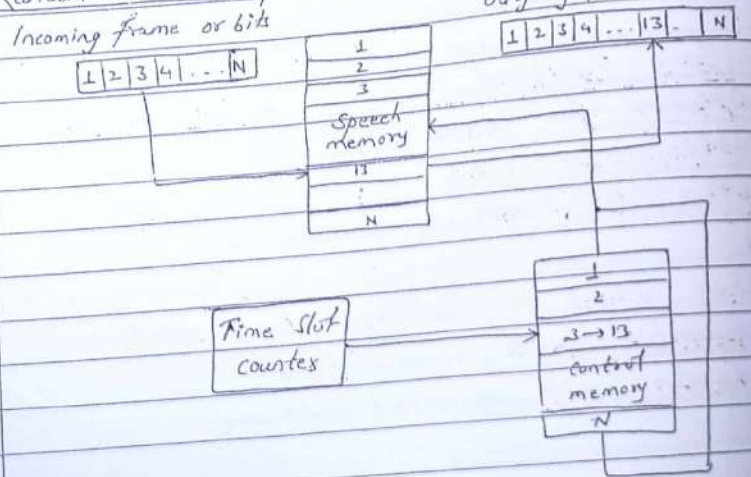 Incoming frame or bits
1 2 3 4 ... N
1
2
3
Speech
memory
13
:
N
1 2 3 4 ... 13 .. N
Time Slot
counter
1
2
3→13
control
memory
N